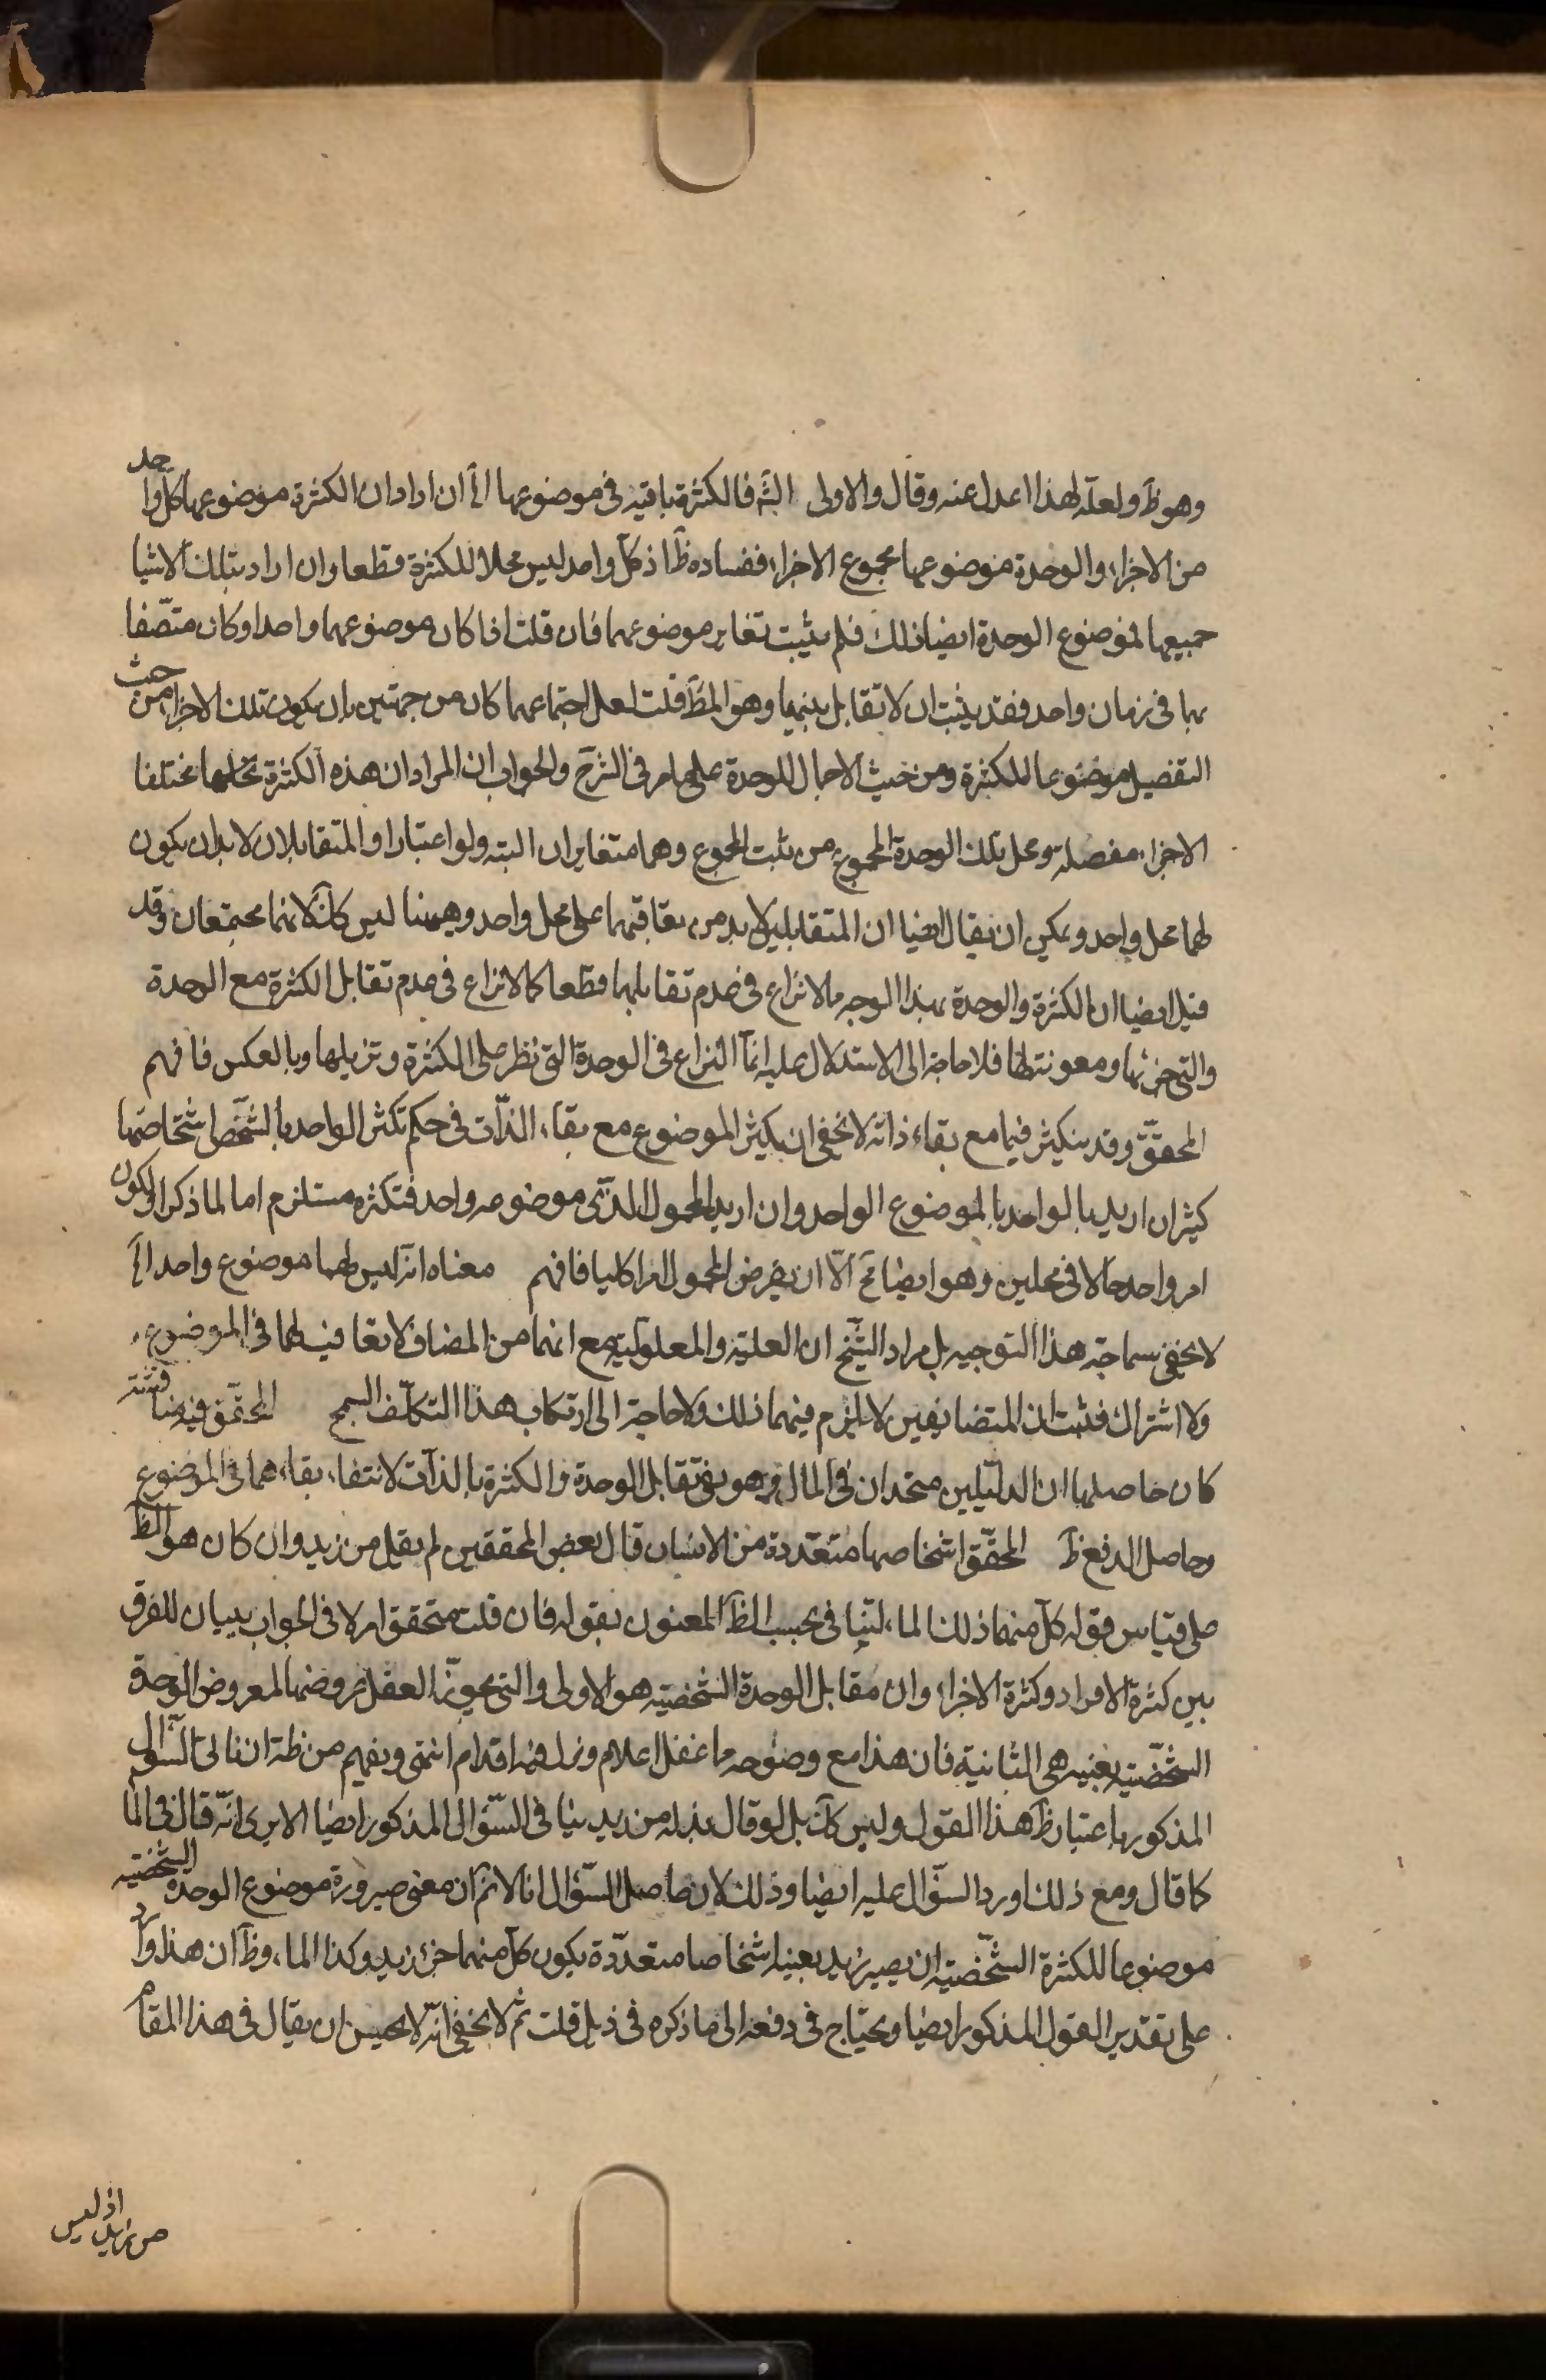 وهو ظ ولعله لهذا اعدل عنه وقال والاولى الش فالكثرة باقية فى موضوعها الخ ان اراد ان الكثرة موضوعها كل واحد
من الاجزاء والوحدة موضوعها مجموع الاجزاء ففساده ظ اذ كل واحد ليس محلا للكثرة قطعا وان اراد بتلك الاشيا
جميعها فموضوع الوحدة ايضا ذلك فلم يثبت تغاير موضوعهما فان قلت اذا كان موضوعهما واحدا وكان متصفا
بها فى زمان واحد فقد يثبت ان لا تقابل بينهما وهو المظ قلت لعل اجتماعهما كان من جهتين بان يكون تلك الاجزاء من حيث
التفصيل موضوعا للكثرة ومن حيث الاجمال للوحدة على ما مر فى الشرح والجواب ان المراد ان هذه الكثرة محلها مختلفا
الاجزاء مفصلة ومحل تلك الوحدة المجموع من حيث المجموع وهما متغايران البتة ولو اعتبارا والمتقابلان لا بد ان يكون
لهما محل واحد ويمكن ان يقال ايضا ان المتقابلين لا بد من تعاقبهما على محل واحد وههنا ليس كك لانهما مجتمعان وقد
قيل ايضا ان الكثرة والوحدة بهذا الوجه مما لا نزاع فى عدم تقابلهما قطعا كما لا نزاع فى عدم تقابل الكثرة مع الوحدة
والتى جزئها ومعونتها فلا حاجة الى الاستدلال عليه انما النزاع فى الوحدة التى تطرء على الكثرة وتزيلها وبالعكس فافهم
المحقق وقد يتكثر فيما مع بقاء ذاته لا يخفى ان تكثر الموضوع مع بقاء الذات فى حكم تكثر الواحد بالشخص اشخاصها
كثير ان اريد بالواحد بالموضوع الواحد وان اريد المحمول الذى موضوعه واحد فتكثره مستلزم اما لما ذكر او لكون
امر واحد حالا فى محلين وهو ايضا مح الا ان يفرض المحمول امرا كليا فافهم معناه انه ليس لهما موضوع واحد الخ
لا يخفى سماجة هذا التوجيه بل مراد الشيخ ان العلية والمعلولية مع انهما من المضاف لا تعاقب لهما فى الموضوع
ولا اشتراك فثبت ان المتضايفين لا يلزم فيهما ذلك ولا حاجة الى ارتكاب هذا التكلف السمج المحقق فيه مناقشة
كان حاصلها ان الدليلين متحدان فى المال وهو نفى تقابل الوحدة والكثرة بالذات لانتفاء بقاءهما فى الموضوع
وحاصل الدفع ظ المحقق اشخاصها متعددة من الانسان قال بعض المحققين لم يقل من زيد وان كان هو الظ
على قياس قوله كل منهما ذلك الماء لينافى بحسب الظ المعنون بقوله فان قلت متحقق ام لا فى الجواب ببيان للفرق
بين كثرة الافراد وكثرة الاجزاء وان مقابل الوحدة الشخصية هو الاولى والتى يجوز العقل عروضها لمعروض الوحدة
الشخصية بعينه هى الثانية فان هذا مع وضوحه ما غفل اعلام وزل فيه اقدام انتهى ويفهم من ظه ان نافى السؤال
المذكور باعتبار ظ هذا القول وليس كك بل لو قال بدله من زيد ينافى السؤال المذكور ايضا الا يرى انه قال فى الما
كما قال ومع ذلك اورد السؤال عليه ايضا وذلك لان حاصل السؤال انا لا نم ان معنى صيرورة موضوع الوحدة الشخصية
موضوعا للكثرة الشخصية ان يصير زيد بعينه اشخاصا متعددة يكون كل منهما جزء زيد وكذا الماء وظ ان هذا وارد
على تقدير القول المذكور ايضا ويحتاج فى دفعه الى ما ذكره فى ذيل قلت ثم لا يخفى انه لا يحسن ان يقال فى هذا المقام
اذ ليس
من زيد